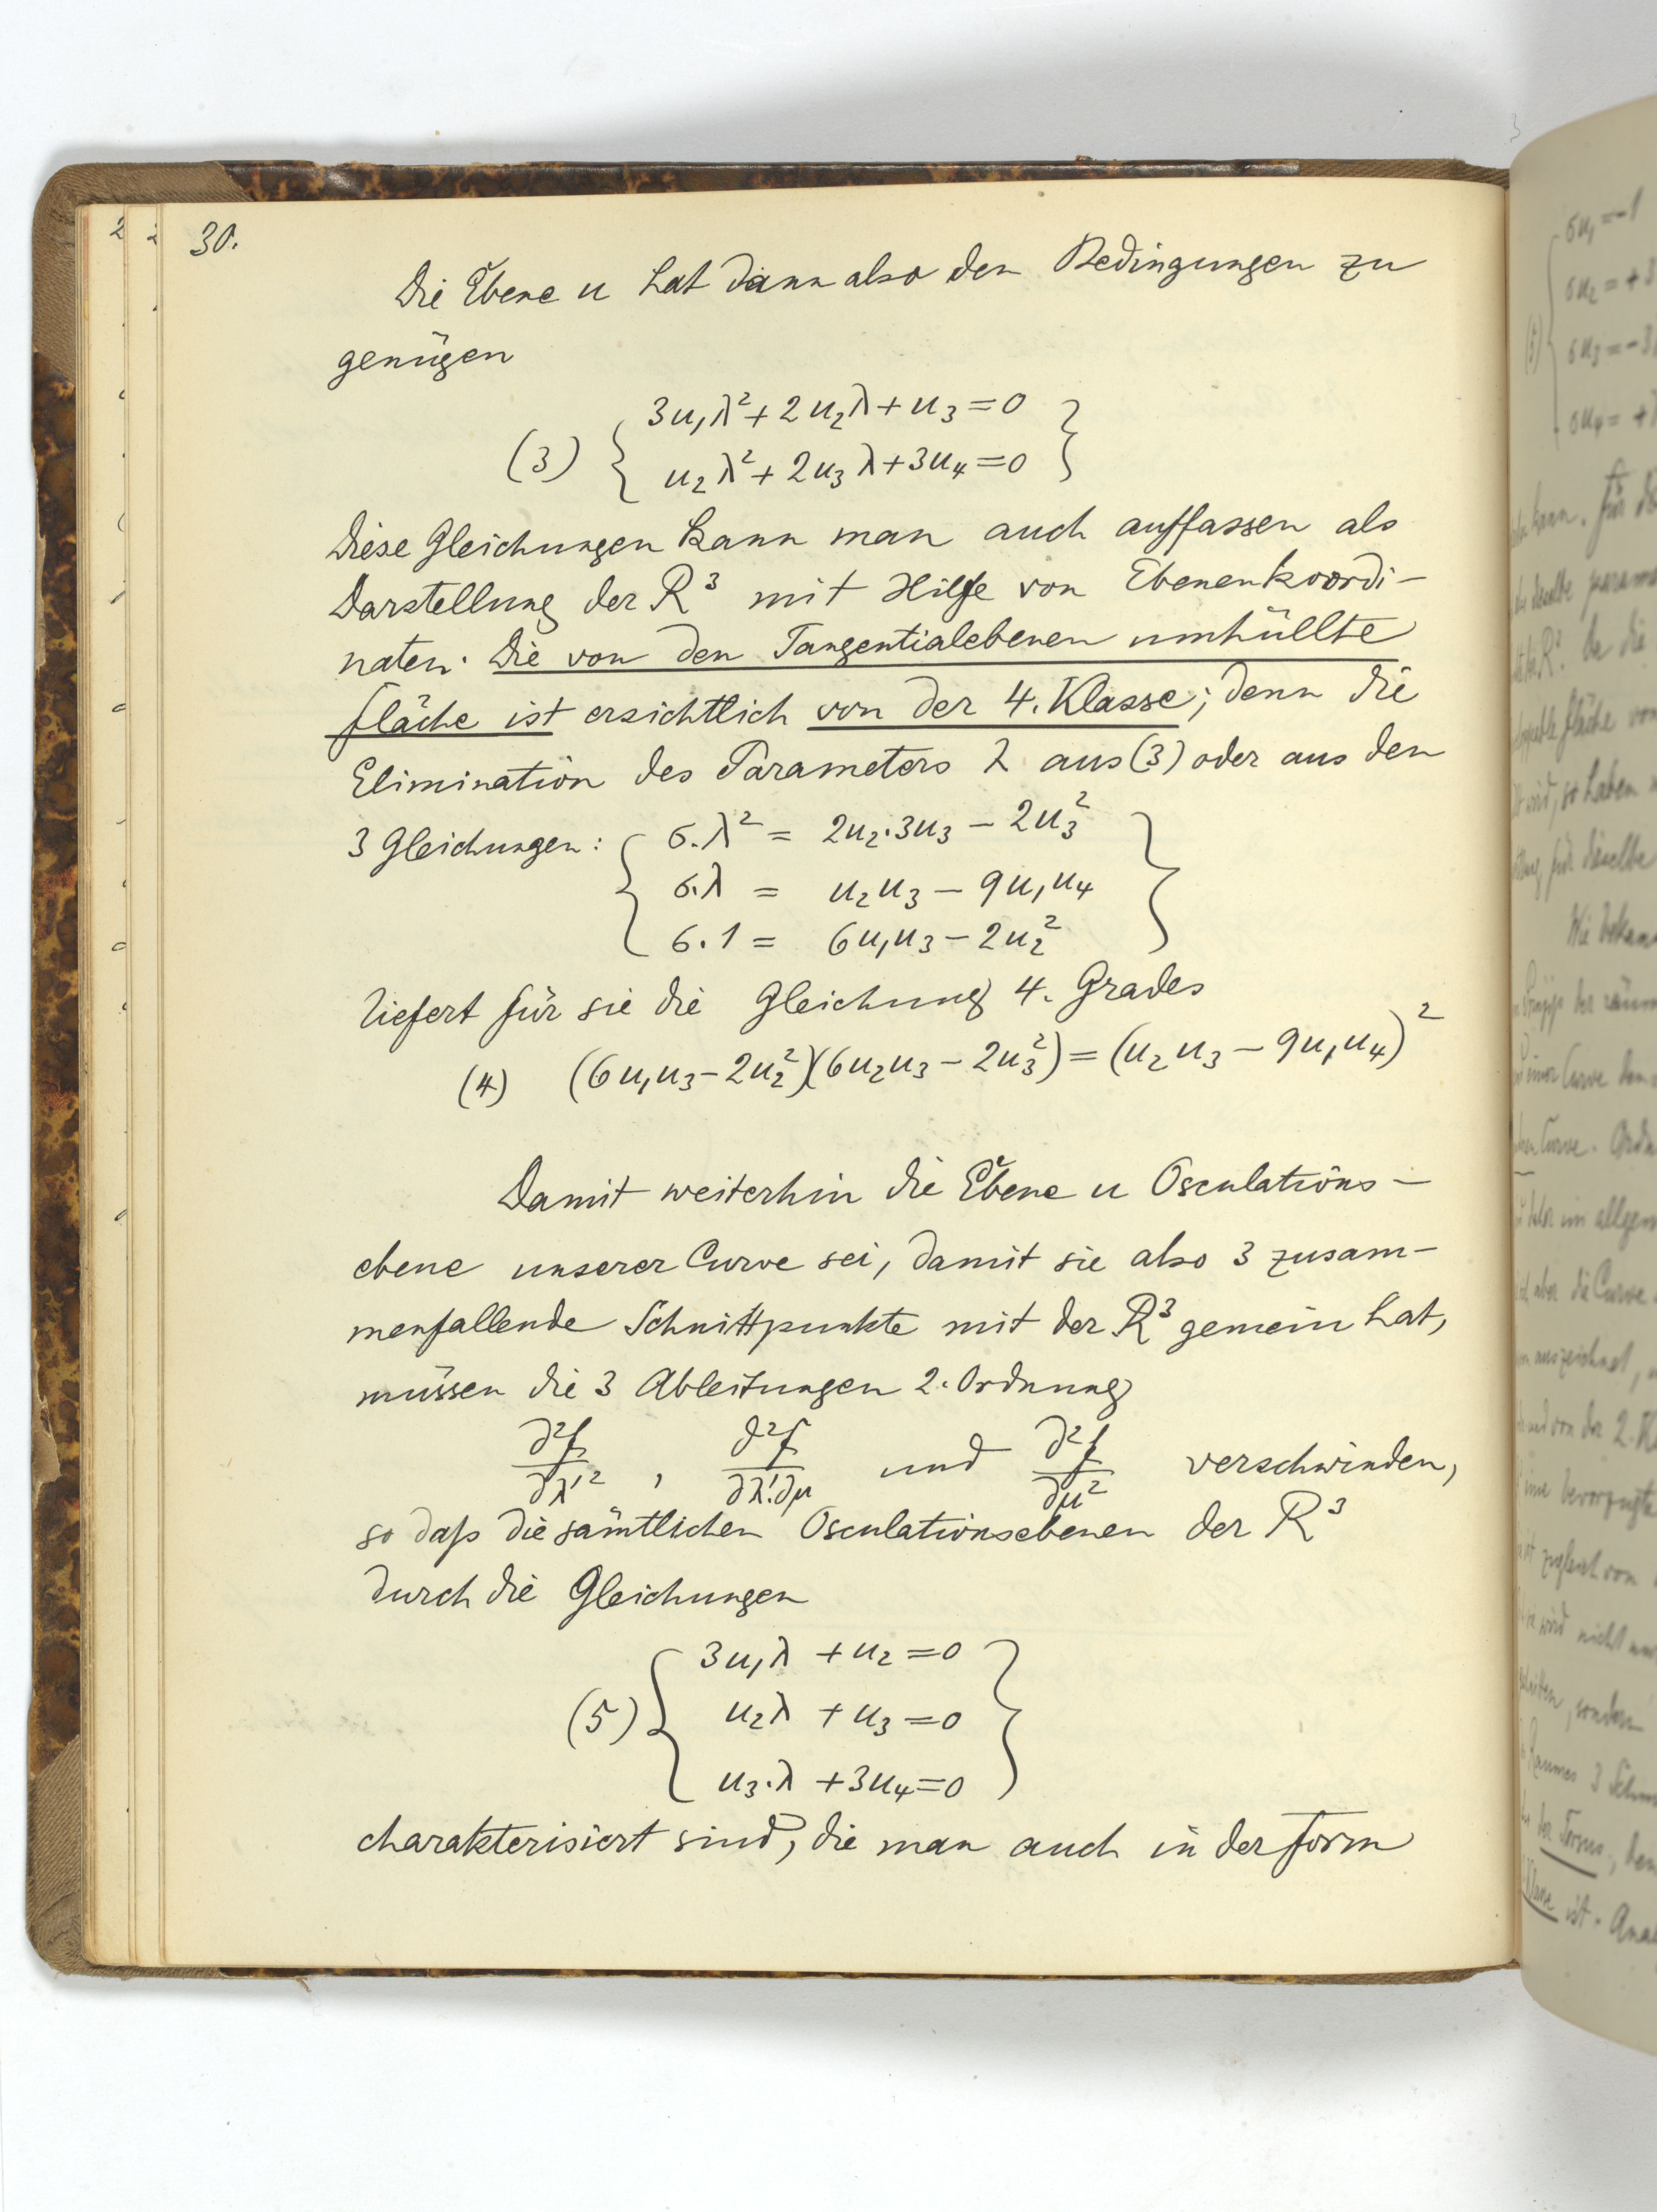 30.
Die Ebene u hat dann also den Bedingungen zu
genügen
(3) { 3u₁λ² + 2u₂λ + u₃ = 0
u₂λ² + 2u₃λ + 3u₄ = 0 }
Diese Gleichungen kann man auch auffassen als
Darstellung der R³ mit Hilfe von Ebenenkoordi-
naten. Die von den Tangentialebenen umhüllte
Fläche ist ersichtlich von der 4. Klasse; denn die
Elimination des Parameters λ aus (3) oder aus den
3 Gleichungen: { σ.λ² = 2u₂.3u₃ - 2u₃²
σ.λ = u₂u₃ - 9u₁u₄
σ.1 = 6u₁u₃ - 2u₂² }
liefert für sie die Gleichung 4. Grades
(4) (6u₁u₃ - 2u₂²)(6u₂u₃ - 2u₃²) = (u₂u₃ - 9u₁u₄)²
Damit weiterhin die Ebene u Osculations-
ebene unserer Curve sei, damit sie also 3 zusam-
menfallende Schnittpunkte mit der R³ gemein hat,
müssen die 3 Ableitungen 2. Ordnung
∂²f/∂λ'², ∂²f/∂λ'.∂μ und ∂²f/∂μ² verschwinden,
so daß die sämtlichen Osculationsebenen der R³
durch die Gleichungen
(5) { 3u₁λ + u₂ = 0
u₂λ + u₃ = 0
u₃.λ + 3u₄ = 0 }
charakterisiert sind, die man auch in der Form
σu₁ = -1
σu₂ = +3
(5) σu₃ = -3
σu₄ = +